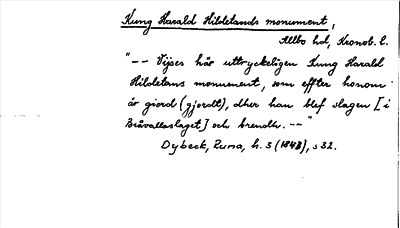 Kung Harald Hildetands monument,
Allbo hd, Kronob. l.
"-- Vijser här uttryckeligen Kung Harald
Hildetans monument, som effter honom
är giord (gjordt), dher han blef slagen [i
Bråvallaslaget] och brendh. --"
Dybeck, Runa, h. 5 (1843), s 32.